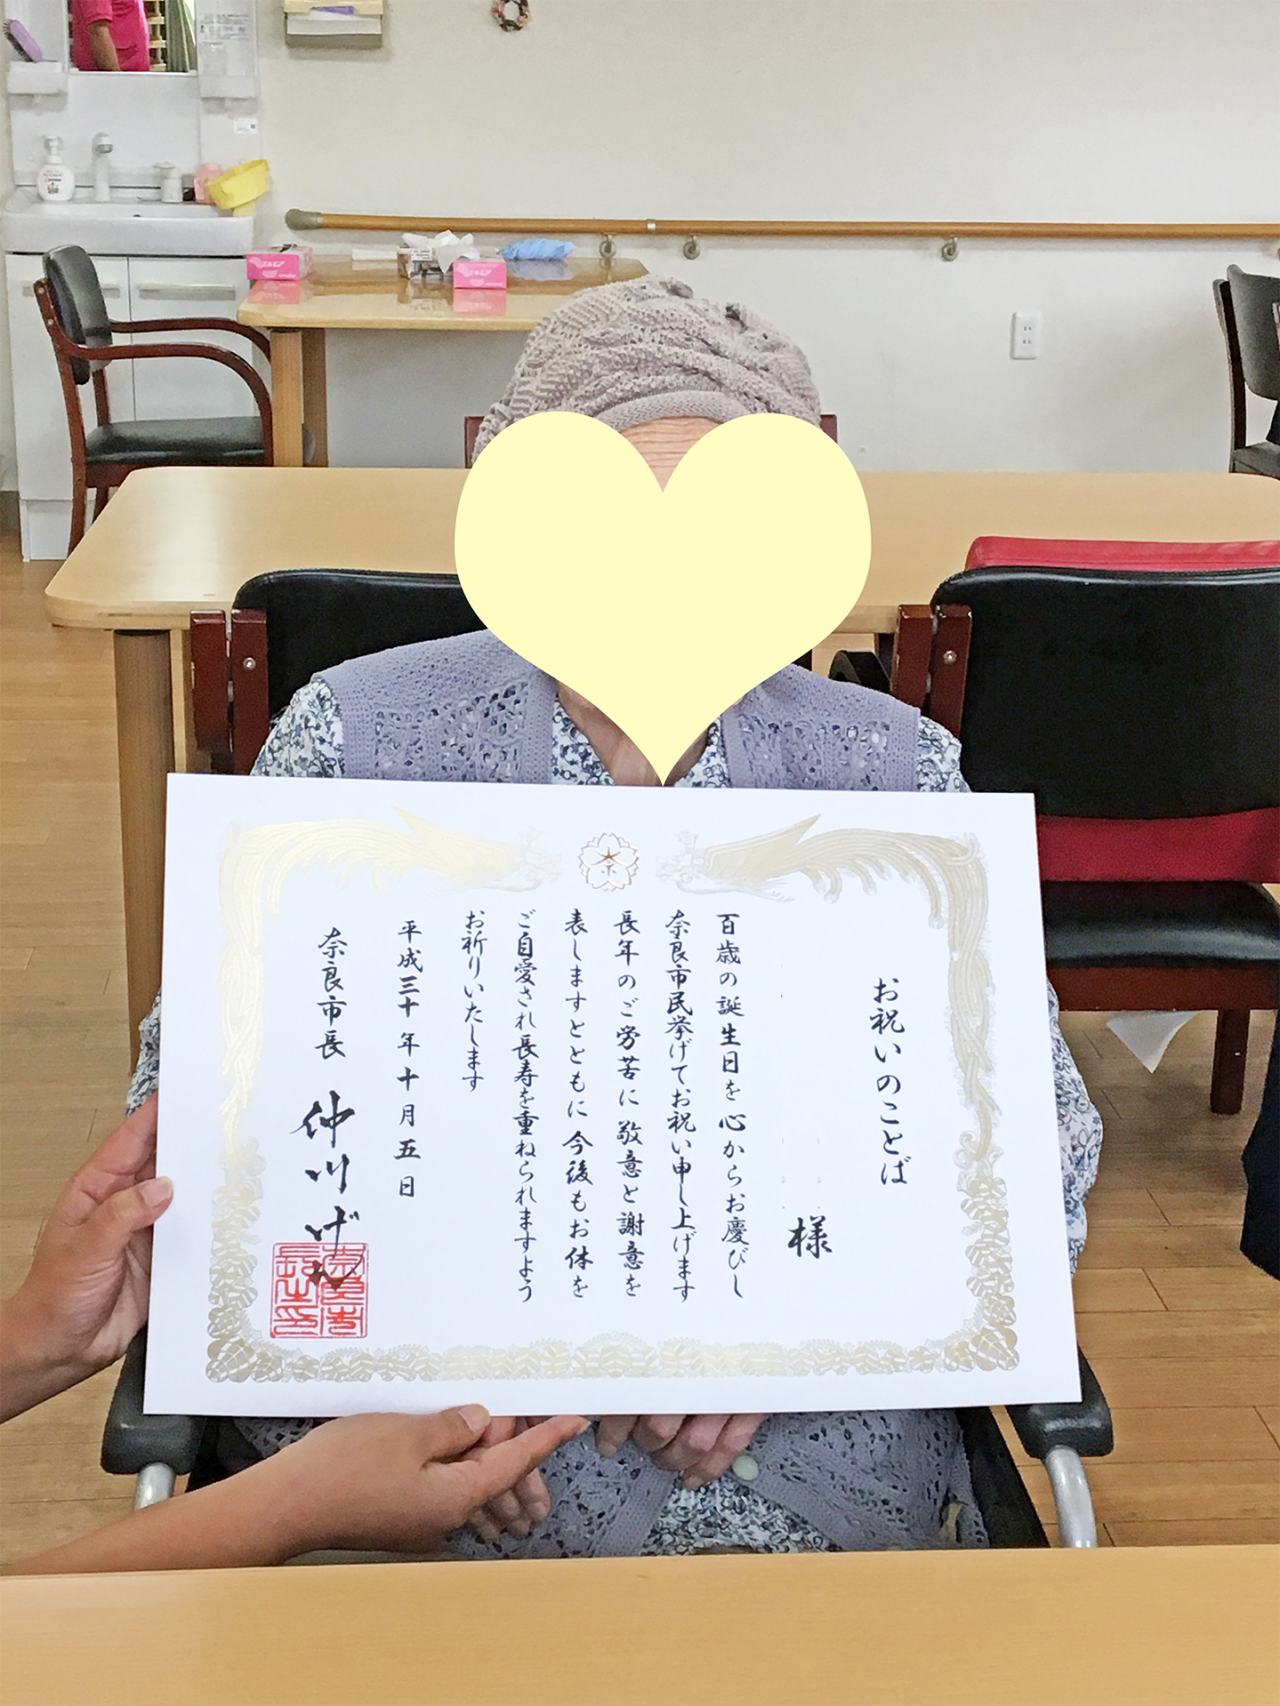 お祝いのことば
様
百歳の誕生日を心からお慶びし
奈良市民挙げてお祝い申し上げます
長年のご労苦に敬意と謝意を
表しますとともに今後もお体を
ご自愛され長寿を重ねられますよう
お祈りいたします
平成三十年十月五日
奈良市長 仲川げん
奈良市長之印